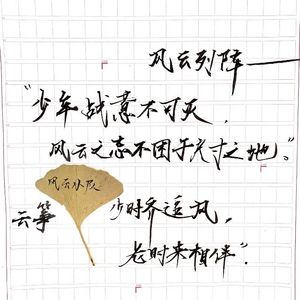 风云列阵——
“少年战意不可灭,
风云之志不困于尺寸之地。”
风云小队
云筝
少时齐追风,
老时来相伴”.